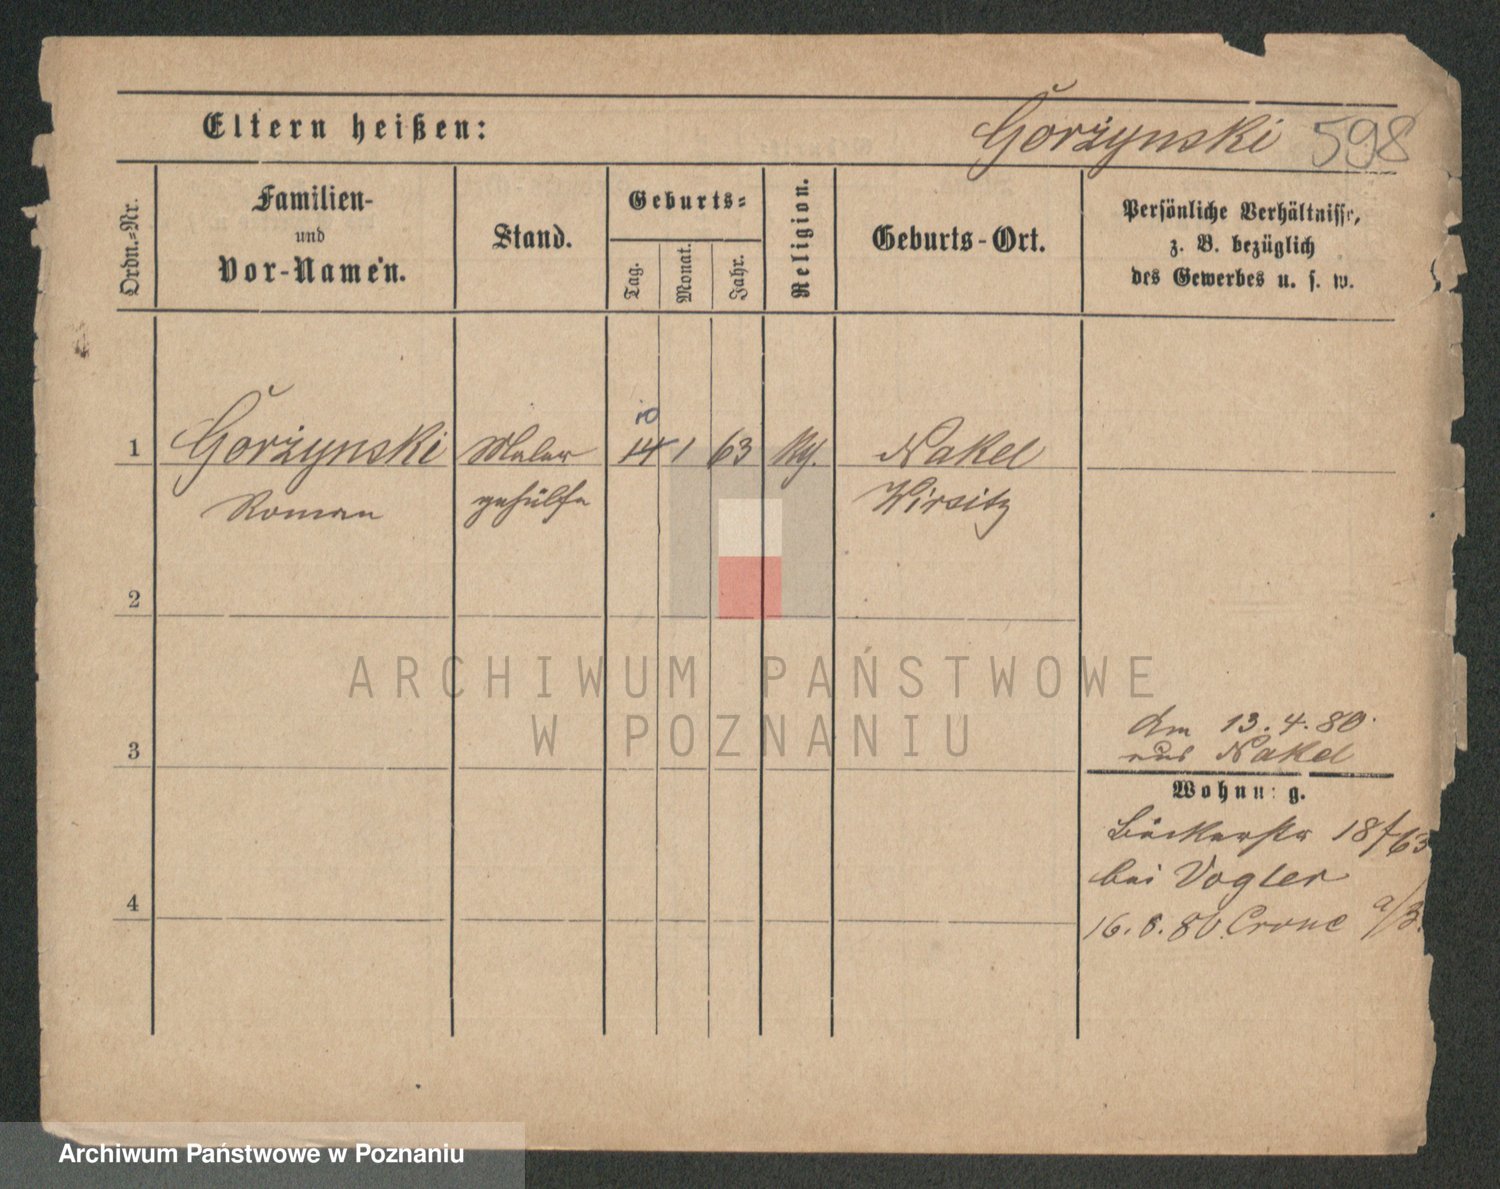 Eltern heißen:
Gorżynski 598
Ordn.-Nr.
Familien-
und
Vor-Namen.
Stand.
Geburts-
Tag.
Monat.
Jahr.
Religion.
Geburts-Ort.
Persönliche Verhältnisse,
z. B. bezüglich
des Gewerbes u. s. w.
1 Gorżynski Maler 14 1 63 Nakel
Roman gehülfe Wirsitz
2
3
4
Am 13.4.80.
aus Nakel
Wohnung.
Bäckerstr 18
bei Vogler
80. Crone a/B.
ARCHIWUM PAŃSTWOWE
W POZNANIU
Archiwum Państwowe w Poznaniu